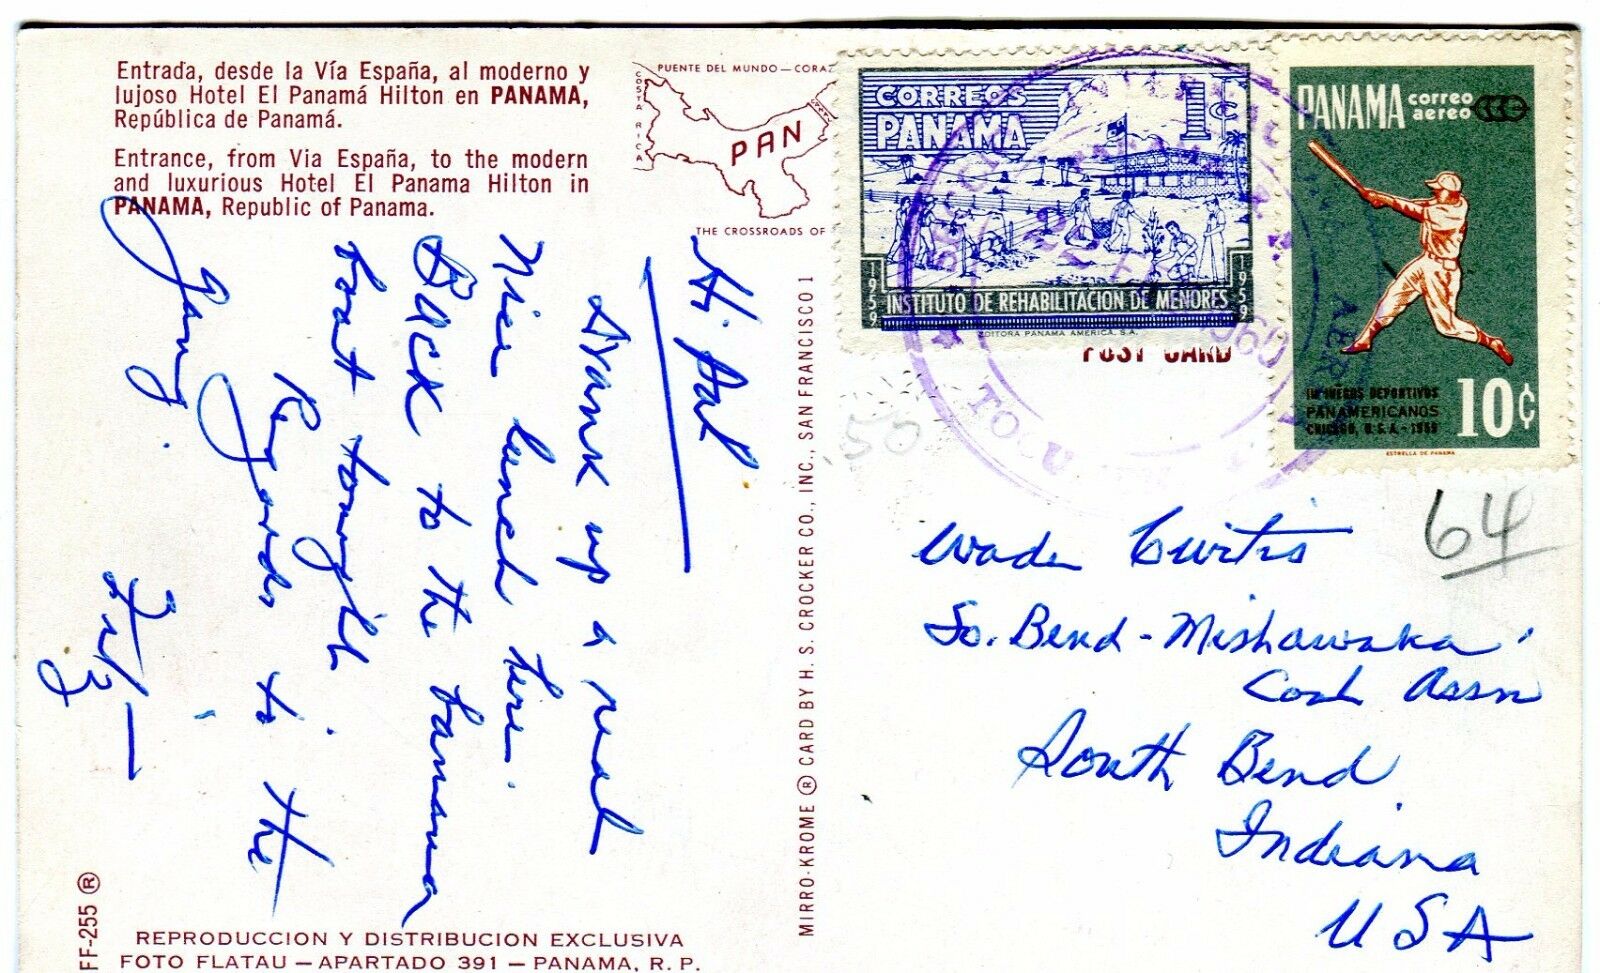 Entrada, desde la Vía España, al moderno y
lujoso Hotel El Panamá Hilton en PANAMA,
República de Panamá.
Entrance, from Via España, to the modern
and luxurious Hotel El Panama Hilton in
PANAMA, Republic of Panama.
PUENTE DEL MUNDO — CORAZ
COSTA RICA
PAN
THE CROSSROADS OF
Hi Pal
Drank up a real
Nice lunch here.
Back to the Banana
boat tonight
Regards to the
Gang.
Fritz
MIRRO-KROME ® CARD BY H. S. CROCKER CO., INC., SAN FRANCISCO 1
FF-255 ®
REPRODUCCION Y DISTRIBUCION EXCLUSIVA
FOTO FLATAU — APARTADO 391 — PANAMA, R. P.
CORREOS
PANAMA
1c
1959
1959
INSTITUTO DE REHABILITACION DE MENORES
EDITORA PANAMA AMERICA, S.A.
POST CARD
PANAMA correo
aereo
III JUEGOS DEPORTIVOS
PANAMERICANOS
CHICAGO, U.S.A. - 1959
10¢
ESTRELLA DE PANAMA
TOCU
AER
.50
64
Wade Curtis
So. Bend - Mishawaka
Cosh Assn
South Bend
Indiana
USA